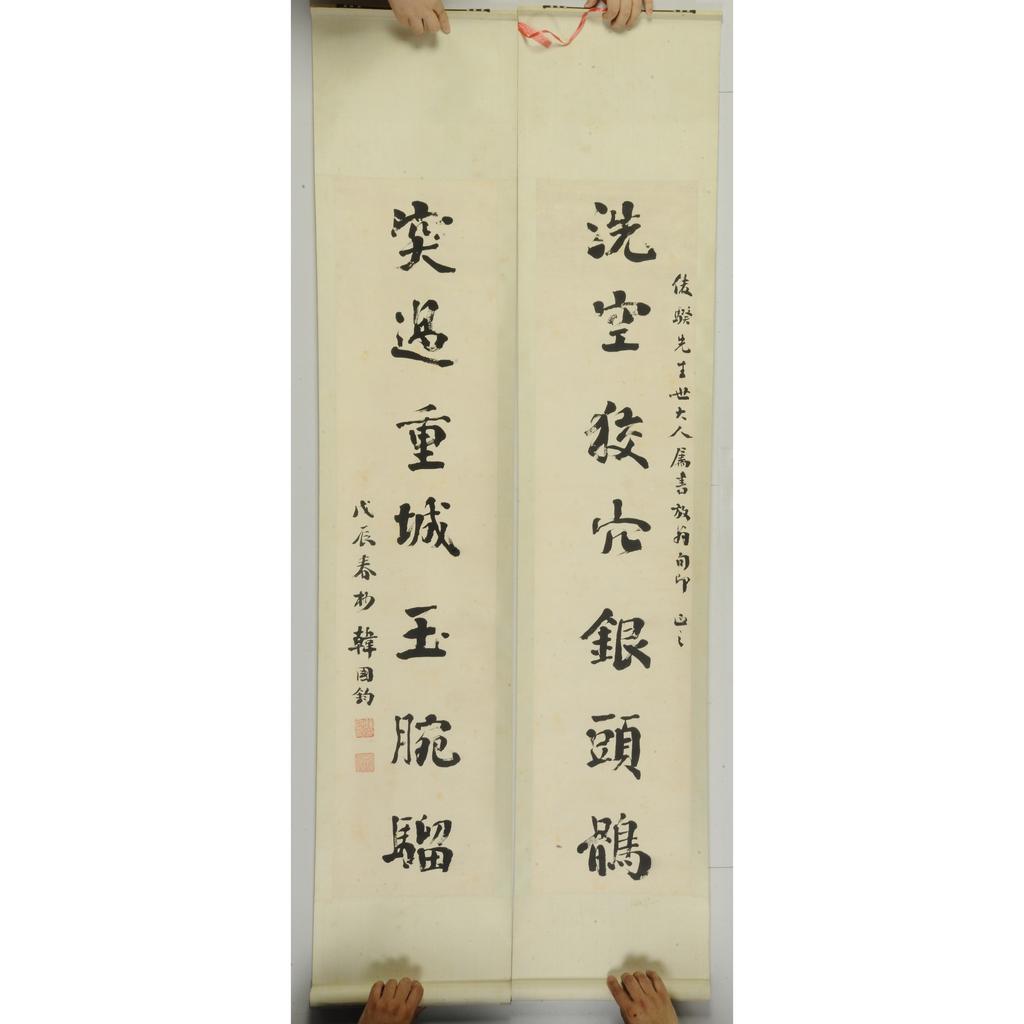 洗空狡穴銀頭鶻
突過重城玉腕騮
先生世大人屬書放翁句印正之
戊辰春杪韓國鈞